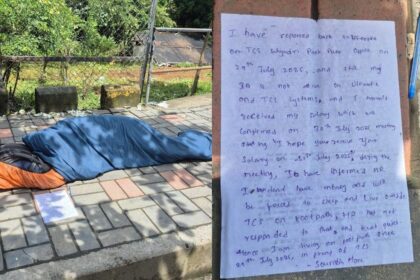 I have reported back
on TCS Sahyadri Park Pune Office on
29th July 2025, and still my
ID is not active on Ultimatix
and TCS systems, and I haven't
received my salary which was
confirmed on 30th July 2025 meeting
hope you receive your
Salary on 31st July 2025, during the
meeting, I do have informed HR
I don't have money and will
be forced to sleep and live outside
TCS on footpath, HR has not
responded to that, and kept quiet
hence I am living on footpath since
29th July 2025, in front of TCS
- Saurabh More